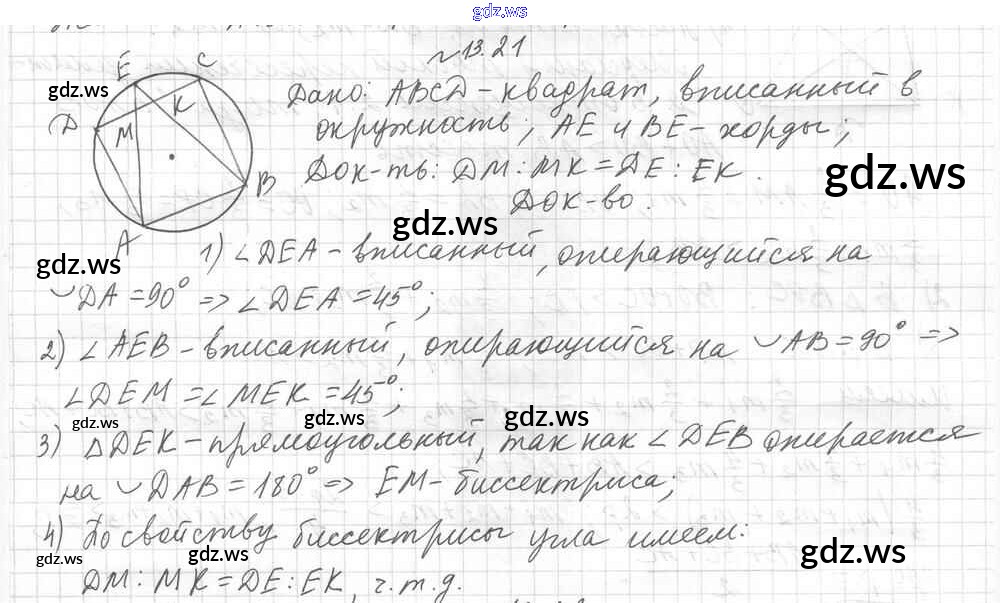 gdz.ws
№13.21
E C
gdz.ws
D K M
B
A
Дано: ABCD - квадрат, вписанный в
окружность; AE и BE - хорды;
Док-ть: DM : MK = DE : EK.
gdz.ws
Док-во.
gdz.ws
gdz.ws
1) ∠DEA - вписанный, опирающийся на
◡DA = 90° => ∠DEA = 45°;
2) ∠AEB - вписанный, опирающийся на ◡AB = 90° =>
∠DEM = ∠MEK = 45°;
gdz.ws gdz.ws gdz.ws
3) △DEK - прямоугольный, так как ∠DEB опирается
на ◡DAB = 180° => EM - биссектриса;
4) По свойству биссектрисы угла имеем:
gdz.ws gdz.ws gdz.ws
DM : MK = DE : EK, ч.т.д.